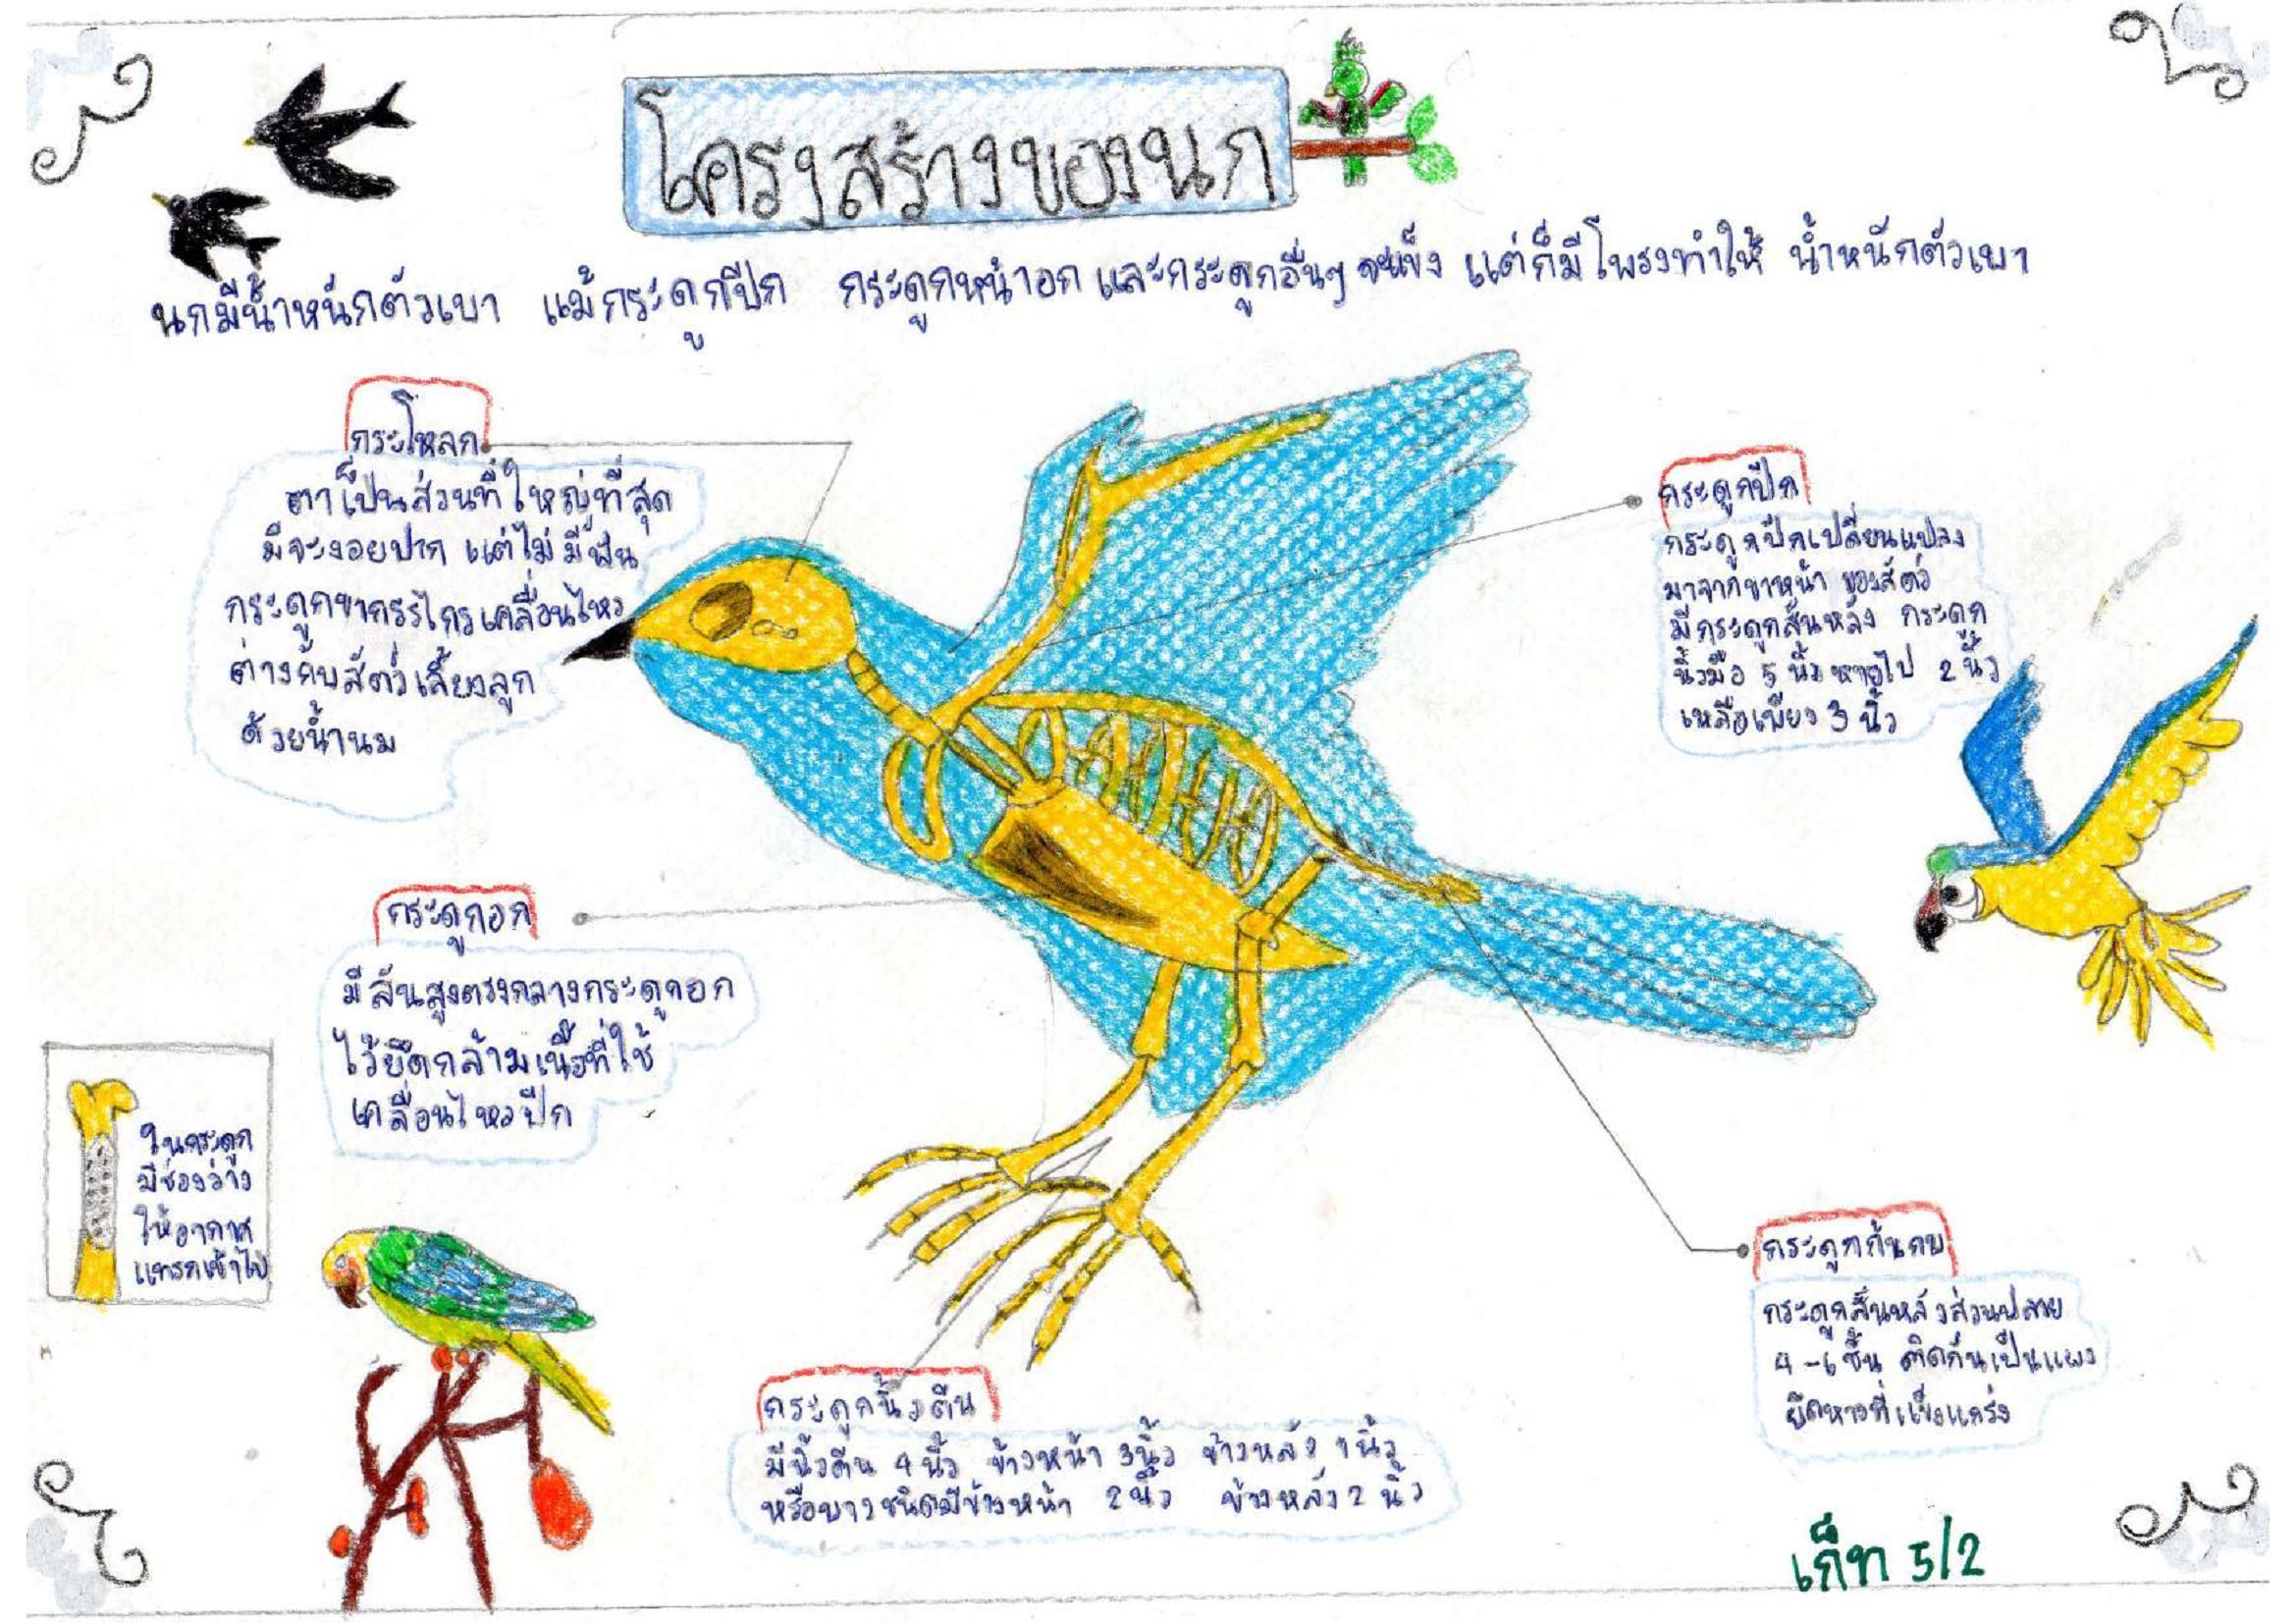 โครงสร้างของนก
นกมีน้ำหนักตัวเบา แม้กระดูกปีก กระดูกหน้าอก และกระดูกอื่นๆ จะแข็ง แต่ก็มีโพรงทำให้ น้ำหนักตัวเบา
กระโหลก
ตาเป็นส่วนที่ใหญ่ที่สุด
มีจะงอยปาก แต่ไม่มีฟัน
กระดูกขากรรไกรเคลื่อนไหว
ต่างกับสัตว์เลี้ยงลูก
ด้วยน้ำนม
กระดูกปีก
กระดูกปีกเปลี่ยนแปลง
มาจากขาหน้า ของสัตว์
มีกระดูกสันหลัง กระดูก
นิ้วมือ 5 นิ้ว หายไป 2 นิ้ว
เหลือเพียง 3 นิ้ว
กระดูกอก
มีสันสูงตรงกลางกระดูกอก
ไว้ยึดกล้ามเนื้อที่ใช้
เคลื่อนไหวปีก
ในกระดูก
มีช่องว่าง
ให้อากาศ
แทรกเข้าไป
กระดูกก้นกบ
กระดูกสันหลังส่วนปลาย
4-6 ชิ้น ติดกันเป็นแผง
ยึดหางที่แข็งแกร่ง
กระดูกนิ้วตีน
มีนิ้วตีน 4 นิ้ว ข้างหน้า 3 นิ้ว ข้างหลัง 1 นิ้ว
หรือบางชนิดมีข้างหน้า 2 นิ้ว ข้างหลัง 2 นิ้ว
เก็ท 5/2